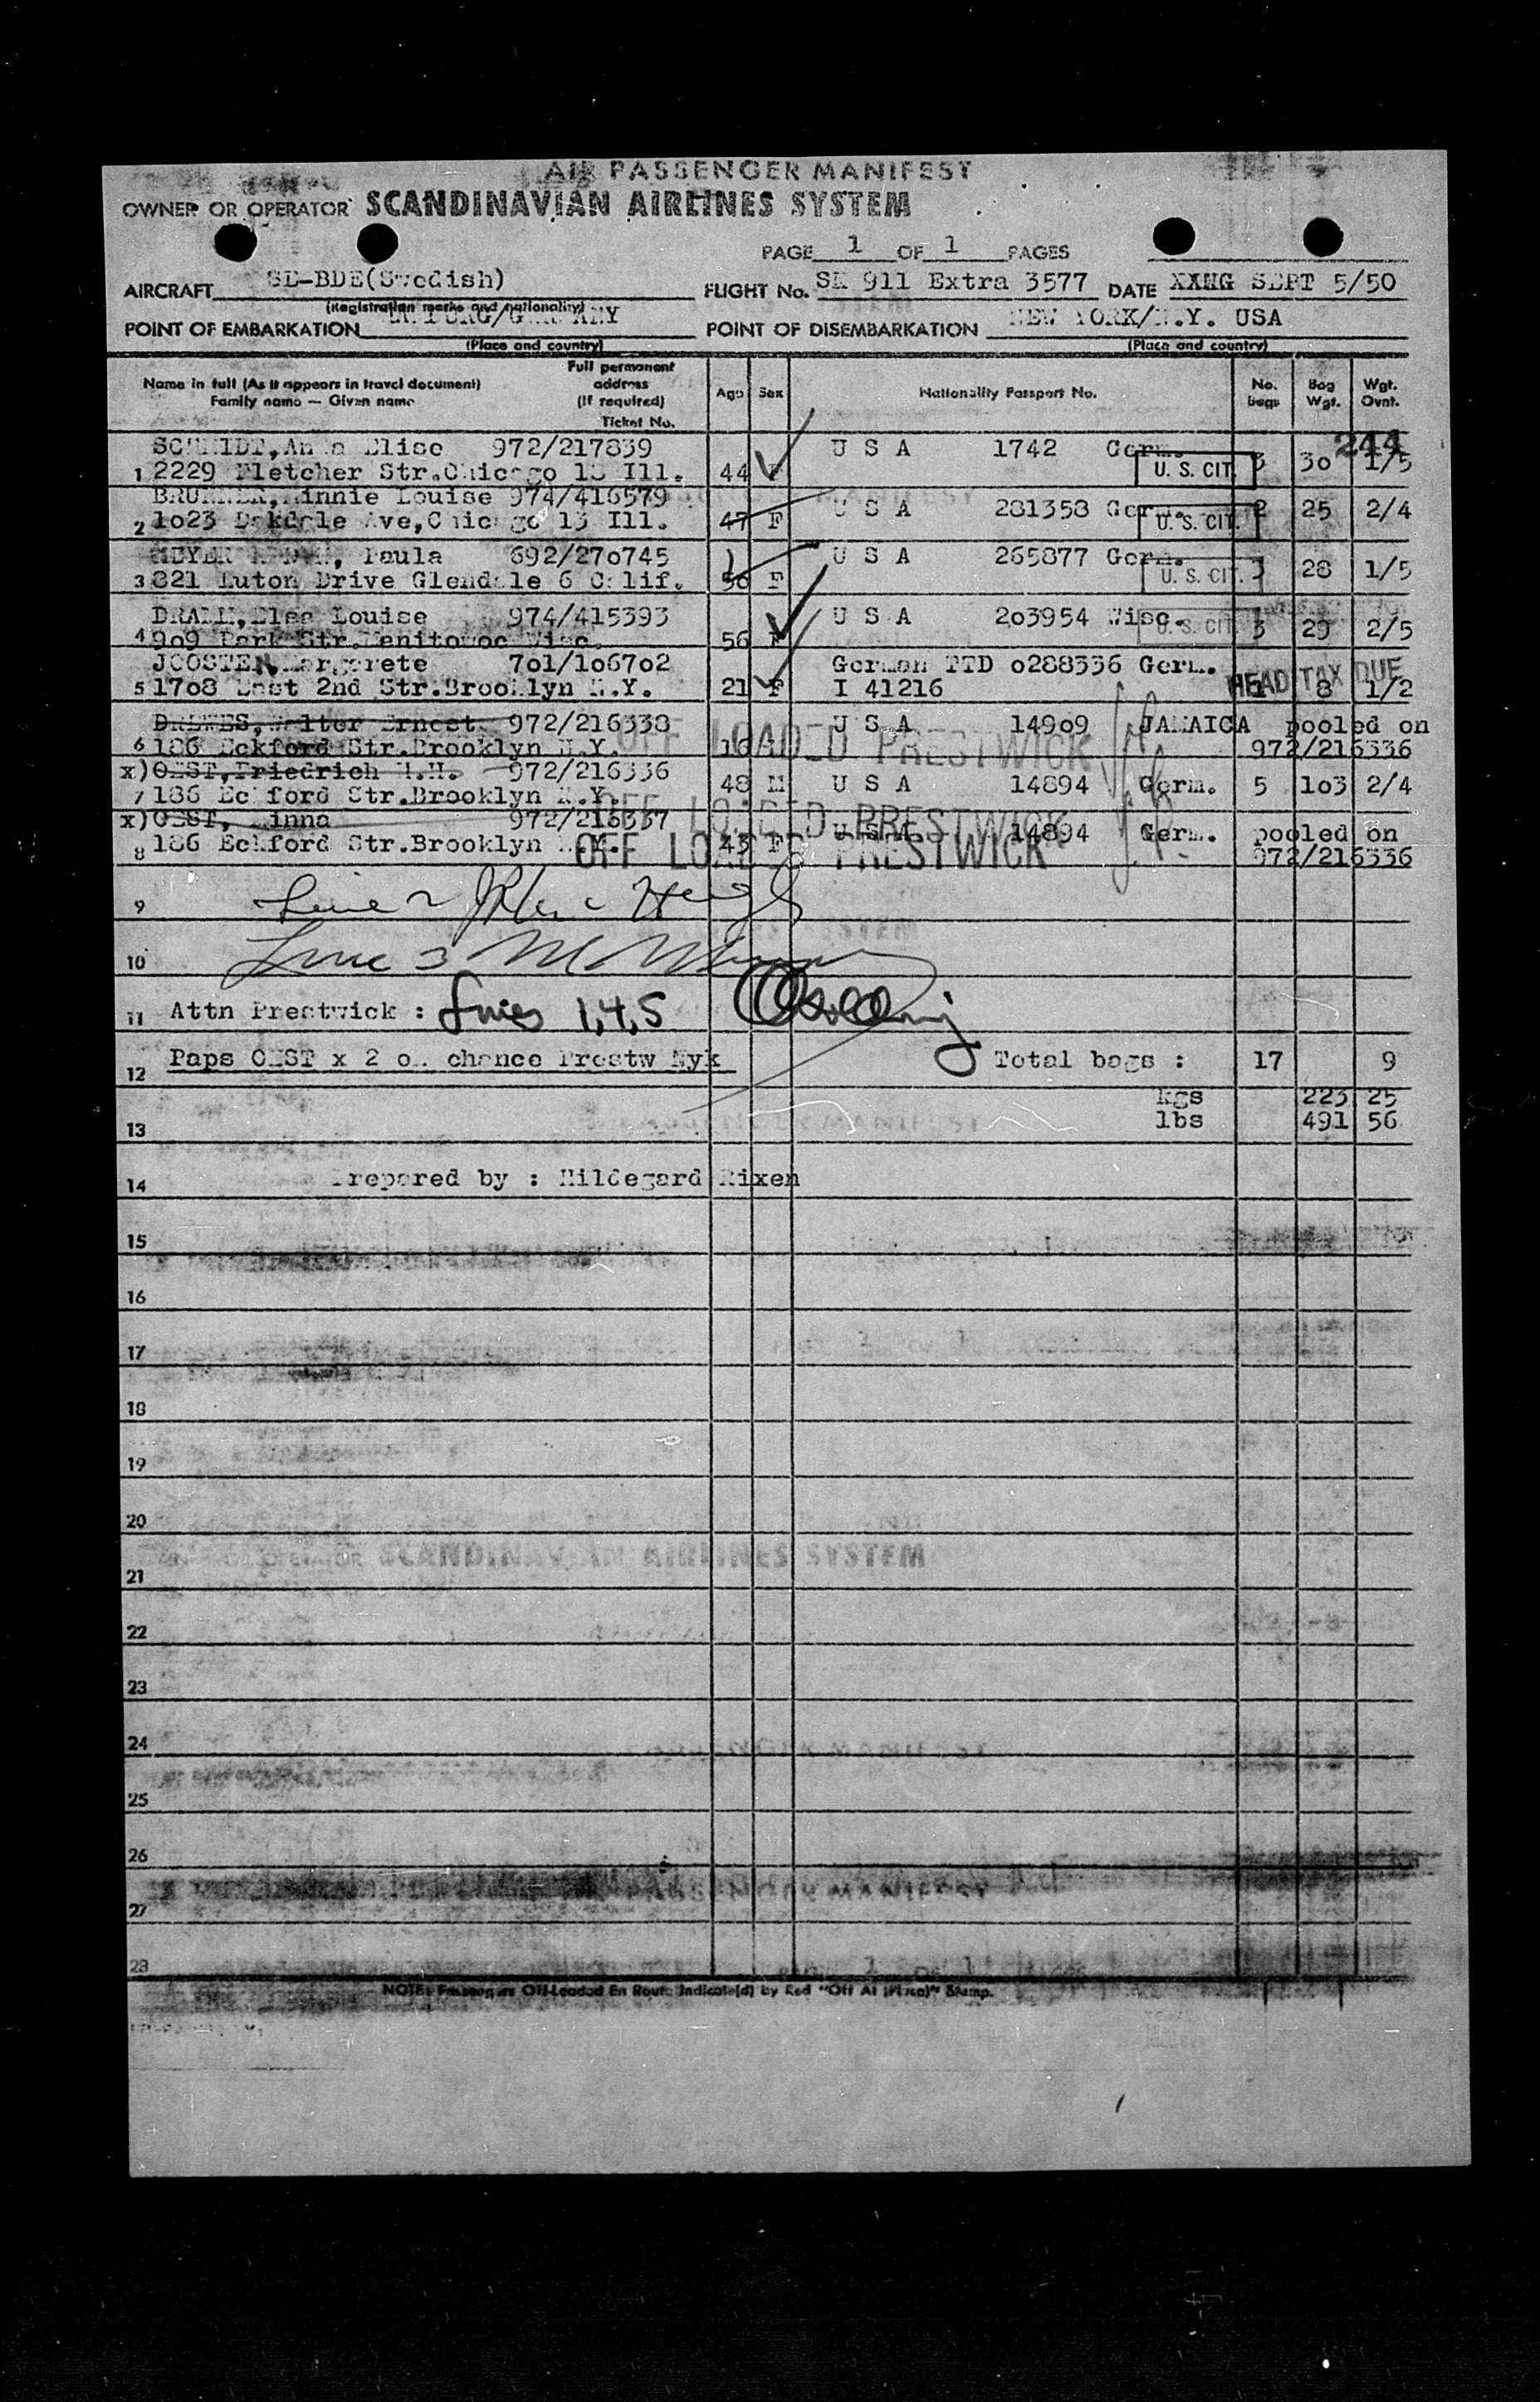 AIR PASSENGER MANIFEST
OWNER OR OPERATOR SCANDINAVIAN AIRLINES SYSTEM
PAGE 1 OF 1 PAGES
AIRCRAFT SE-BDE(Swedish) FLIGHT No. SK 911 Extra 3577 DATE XXHG SEPT 5/50
(Registration marks and nationality)
POINT OF EMBARKATION POINT OF DISEMBARKATION NEW YORK/N.Y. USA
(Place and country) (Place and country)
Name in full (As it appears in travel document) Full permanent address (If required) Age Sex Nationality Passport No. No. bags Bag Wgt. Wgt. Ovnt.
Family name — Given name Ticket No.
244
SCHMIDT, Anna Elise 972/217839 U S A 1742 Germ.
1 2229 Fletcher Str.Chicago 18 Ill. 44 F U. S. CIT. 3 30 1/5
Minnie Louise 974/416579 U S A 281358 Germ.
2 1o23 Oakdale Ave,Chicago 13 Ill. 47 F U. S. CIT. 2 25 2/4
Paula 692/27o745 U S A 265877 Germ.
3 821 Luton Drive Glendale 6 Calif. 56 F U. S. CIT. 3 28 1/5
Louise 974/415393 U S A 2o3954 Wisc.
4 9o9 Park Str.Manitowoc Wisc. 56 F U. S. CIT 3 29 2/5
JOOSTEN, Margarete 7o1/1o67o2 German TTD o288336 Germ. HEAD TAX DUE
5 17o8 East 2nd Str.Brooklyn N.Y. 21 F I 41216 1 8 1/2
DREWES, Walter Ernest 972/216338 U S A 149o9 JAMAICA pooled on
6 186 Eckford Str.Brooklyn N.Y. 16 OFF LOADED PRESTWICK 972/216336
x) OEST, Friedrich H.H. 972/216336
7 186 Eckford Str.Brooklyn N.Y. 48 M U S A 14894 Germ. 5 1o3 2/4
OFF LOADED PRESTWICK
x) OEST, Minna 972/216337 U S A 14894 Germ. pooled on
8 186 Eckford Str.Brooklyn N.Y. 43 F OFF LOADED PRESTWICK 972/216336
9 Line 2
10 Line 3
11 Attn Prestwick : Lines 1,4,5
12 Paps OEST x 2 on chance Prestw Nyk Total bags : 17 9
kgs 223 25
lbs 491 56
13
14 Prepared by : Hildegard Rixen
15
16
17
18
19
20
SCANDINAVIAN AIRLINES SYSTEM
21
22
23
24
25
26
27
28
NOTE: Passengers Off-Loaded En Route Indicate(d) by Red "Off At (Place)" Stamp.